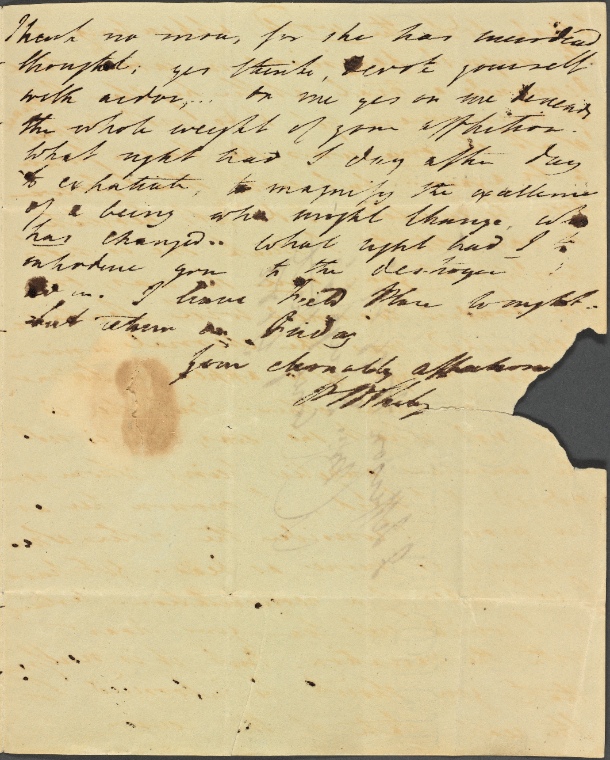 Think no more, for she has
thought; yes think, devote yourself
with ardor,... On me yes on me descends
the whole weight of your affliction.
What right had I day after day
to expatiate, to magnify the excellence
of a being who might change, who
has changed.. What right had I to
introduce you to the destroyer
I leave Field Place tonight.
but return on Friday
Your eternally affectionate
PBShelley